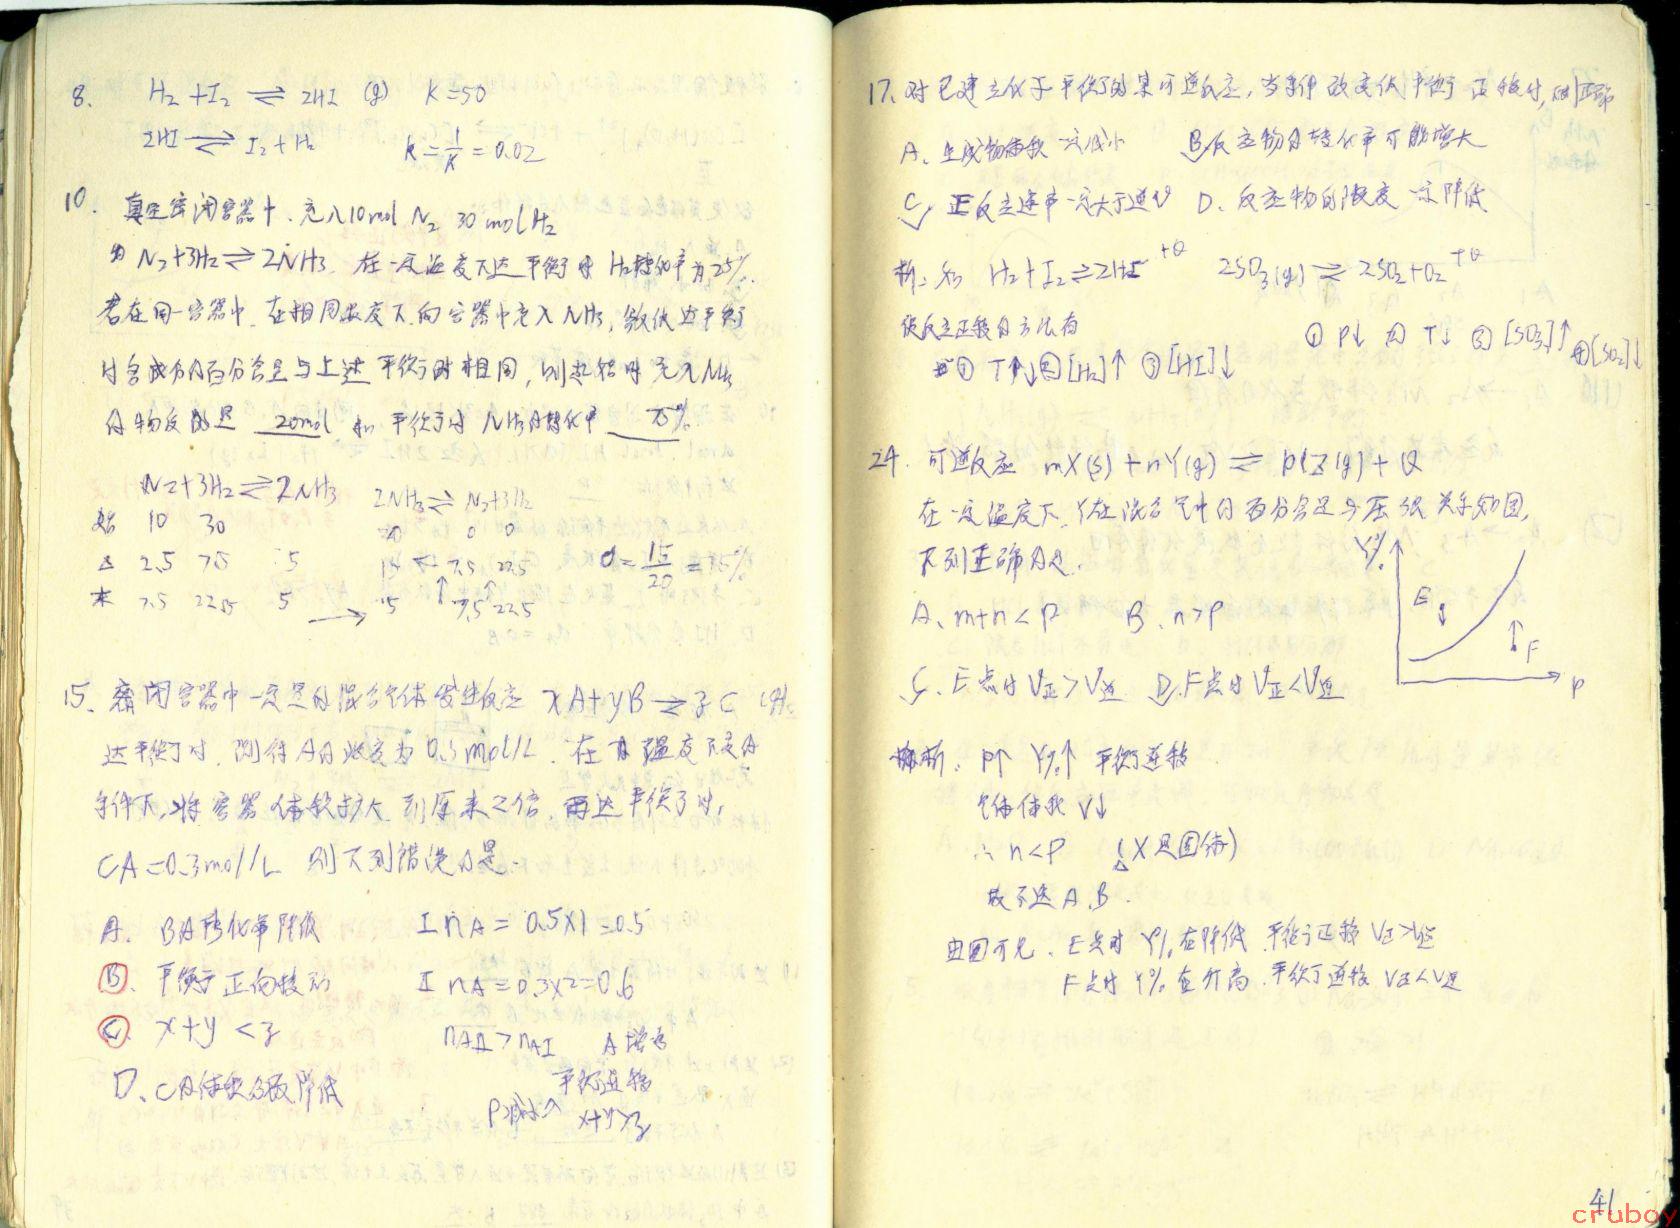 8. H₂ + I₂ ⇌ 2HI (g) K=50
2HI ⇌ I₂ + H₂ K = 1/K = 0.02
10. 真空密闭容器中, 充入10mol N₂ 30molH₂
N₂+3H₂ ⇌ 2NH₃. 在一定温度下达平衡时 H₂转化率为25%.
若在同一容器中, 在相同温度下向容器中充入NH₃, 欲使达平衡
时各成分的百分含量与上述平衡时相同, 则起始时充入NH₃
的物质的量 20mol 和平衡时NH₃的转化率 75%
N₂+3H₂ ⇌ 2NH₃ 2NH₃ ⇌ N₂+3H₂
始 10 30 20 0 0
Δ 2.5 7.5 5 15 7.5 22.5 α = 15/20 = 75%
末 7.5 22.5 5 → 5 7.5 22.5
15. 密闭容器中一定量的混合气体发生反应 xA+yB ⇌ zC (g)
达平衡时, 测得A的浓度为0.5mol/L. 在温度不变的
条件下, 将容器体积扩大到原来2倍, 再达平衡时,
CA=0.3mol/L 则下列错误的是
A. B的转化率降低 I nA = 0.5×1=0.5
B. 平衡正向移动 II nA=0.3×2=0.6
C. x+y < z nAII > nAI A增多
D. C的体积分数降低 平衡逆移
P减小 x+y>z
17. 对已建立化学平衡的某可逆反应, 当条件改变使平衡正移时, 正确
A. 生成物 一定减小 B. 反应物的转化率可能增大
C. 正反应速率一定大于逆 D. 反应物的浓度一定降低
析: 如 H₂+I₂ ⇌ 2HI +Q 2SO₃(g) ⇌ 2SO₂+O₂ +Q
使反应正移的方法有 ① P↓ ② T↓ ③ [SO₃]↑ ④ [SO₂]↓
① T↓ ② [H₂]↑ ③ [HI]↓
24. 可逆反应 mX(s) + nY(g) ⇌ pZ(g) + Q
在一定温度下, Y在混合气中的百分含量与压强关系如图,
下列正确的是.
Y%
E
F
P
A. m+n < P B. n>P
C. E点时 V正>V逆 D. F点时 V正<V逆
解析: P↑ Y%↑ 平衡逆移
气体体积 V↓
∴ n<P (X是固体)
故不选A.B.
由图可见, E点时 Y%在降低 平衡正移 V正>V逆
F点时 Y%在升高, 平衡逆移 V正<V逆
41
cruboy